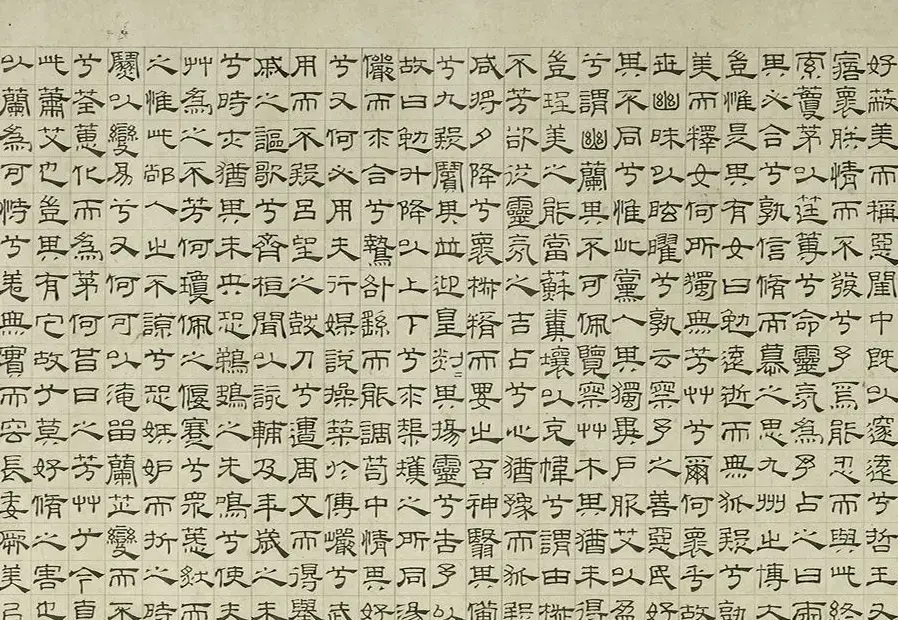 好蔽美而稱惡閨中既以邃遠兮哲王又
寤懷朕情而不發兮予焉能忍而與此終
索藑茅以筳篿兮命靈氛為予占之曰兩
其必合兮孰信脩而慕之思九州之博大
豈惟是其有女曰勉遠逝而無狐疑兮孰
美而釋女何所獨無芳艸兮爾何懷乎故
世幽昧以眩曜兮孰云察予之善惡民好
其不同兮惟此黨人其獨異戶服艾以盈
兮謂幽蘭其不可佩覽察艸木其猶未得
豈珵美之能當蘇糞壤以充幃兮謂申椒
不芳欲從靈氛之吉占兮心猶豫而狐疑
咸將夕降兮懷椒糈而要之百神翳其備
兮九疑繽其並迎皇剡〻其揚靈兮告予以
故曰勉升降以上下兮求榘矱之所同湯
儼而求合兮摯咎繇而能調苟中情其好
兮又何必用夫行媒說操築於傅巖兮武
用而不疑呂望之鼓刀兮遭周文而得舉
戚之謳歌兮齊桓聞以該輔及年歲之未
兮時亦猶其未央恐鵜鴂之先鳴兮使夫
艸為之不芳何瓊佩之偃蹇兮眾薆然而
之惟此䣊人之不諒兮恐嫉妒而折之時
繽以變易兮又何可以淹留蘭芷變而不
兮荃蕙化而為茅何昔日之芳艸兮今直
此蕭艾也豈其有它故兮莫好脩之害也
以蘭為可恃兮羌無實而容長委厥美以